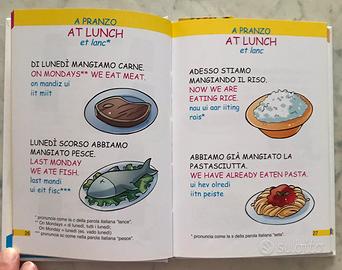 A PRANZO
AT LUNCH
et lanc*
DI LUNEDÌ MANGIAMO CARNE.
ON MONDAYS** WE EAT MEAT.
on mandiz ui
iit miit
LUNEDÌ SCORSO ABBIAMO
MANGIATO PESCE.
LAST MONDAY
WE ATE FISH.
last mandi
ui eit fisc***
* pronuncia come la c della parola italiana "lance".
** On Mondays = di lunedì, tutti i lunedì;
On Monday = lunedì (es. vado lunedì)
*** pronuncia sc come nella parola italiana "pesce".
26
A PRANZO
AT LUNCH
et lanc
ADESSO STIAMO
MANGIANDO IL RISO.
NOW WE ARE
EATING RICE.
nau ui aar iiting
rais*
ABBIAMO GIÀ MANGIATO LA
PASTASCIUTTA.
WE HAVE ALREADY EATEN PASTA.
ui hev olredi
iitn peiste
* pronuncia come la s della parola italiana "sella".
27
subito.it